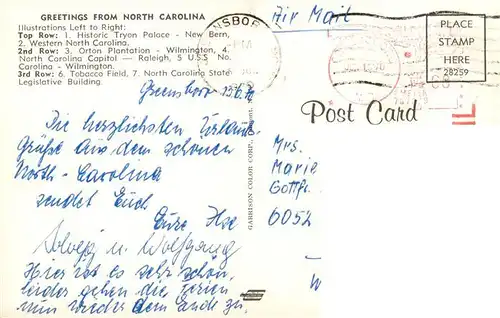 GREETINGS FROM NORTH CAROLINA
Illustrations Left to Right:
Top Row: 1. Historic Tryon Palace - New Bern,
2. Western North Carolina.
2nd Row: 3. Orton Plantation - Wilmington, 4.
North Carolina Capitol — Raleigh, 5 U.S.S. No.
Carolina - Wilmington.
3rd Row: 6. Tobacco Field, 7. North Carolina State
Legislative Building
Air Mail
PLACE
STAMP
HERE
28259
Post Card
Greensboro
Die herzlichsten Urlaubs
Grüße aus dem schönen
North-Carolina
sendet Euch
Eure Ilse
Solveig u. Wolfgang
Hier ist es sehr schön,
leider gehen die Ferien
nun wieder dem Ende zu.
GARRISON COLOR CORP.
Mrs.
Marie
Gottfr.
6052